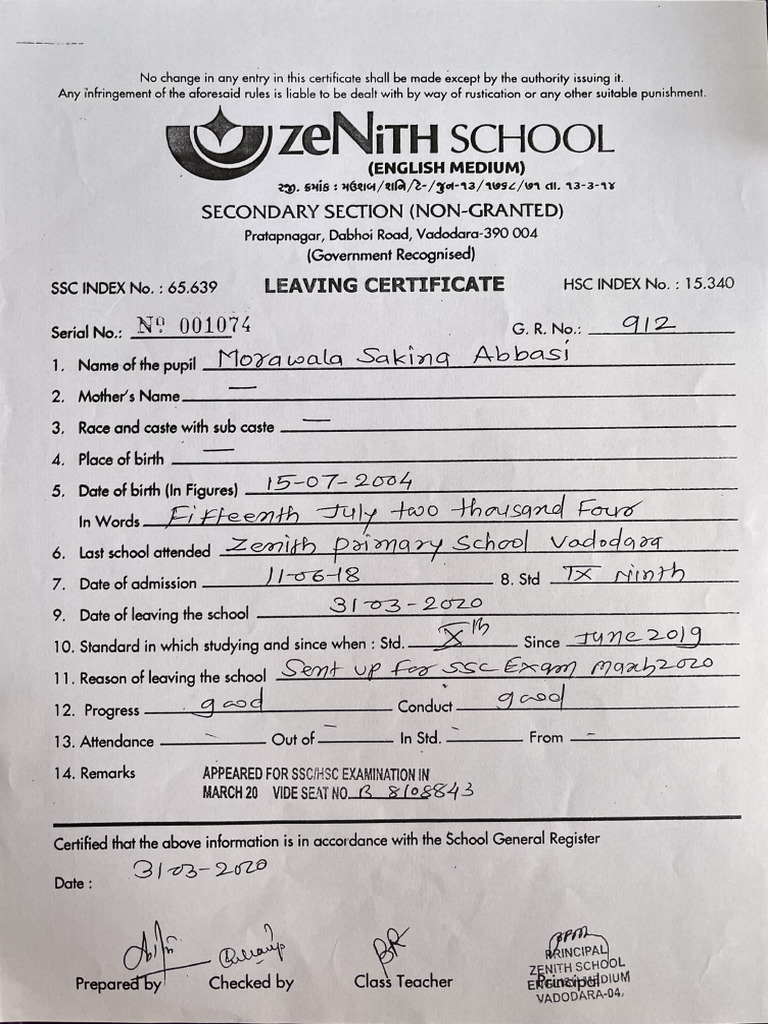 No change in any entry in this certificate shall be made except by the authority issuing it.
Any infringement of the aforesaid rules is liable to be dealt with by way of rustication or any other suitable punishment.
zeNiTH SCHOOL
(ENGLISH MEDIUM)
રજી. ક્રમાંક : મઉશબ/શનિ/ટે-/જુન-૧૩/૧૭૬૮/૭૧ તા. ૧૩-૩-૧૪
SECONDARY SECTION (NON-GRANTED)
Pratapnagar, Dabhoi Road, Vadodara-390 004
(Government Recognised)
SSC INDEX No. : 65.639 LEAVING CERTIFICATE HSC INDEX No. : 15.340
Serial No.: Nº 001074 G. R. No.: 912
1. Name of the pupil Morawala Sakina Abbasi
2. Mother's Name —
3. Race and caste with sub caste —
4. Place of birth —
5. Date of birth (In Figures) 15-07-2004
In Words Fifteenth July two thousand Four
6. Last school attended Zenith primary School Vadodara
7. Date of admission 11-06-18 8. Std IX Ninth
9. Date of leaving the school 31-03-2020
10. Standard in which studying and since when : Std. Xth Since June 2019
11. Reason of leaving the school Sent up for SSC Exam March 2020
12. Progress good Conduct good
13. Attendance - Out of - In Std. - From -
14. Remarks APPEARED FOR SSC/HSC EXAMINATION IN
MARCH 20 VIDE SEAT NO. B 8108843
Certified that the above information is in accordance with the School General Register
Date : 31-03-2020
Prepared by Checked by Class Teacher Principal
PRINCIPAL
ZENITH SCHOOL
ENGLISH MEDIUM
VADODARA-04.